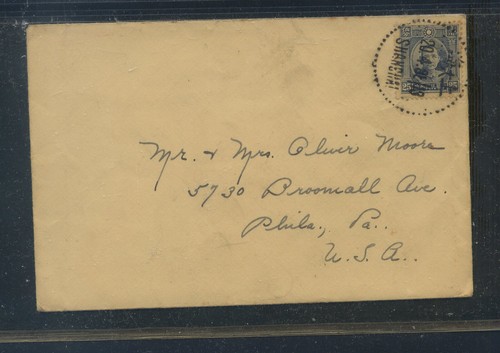 SHANGHAI
Mr. & Mrs. Oliver Moore
5730 Broomall Ave.
Phila., Pa..
U.S.A..